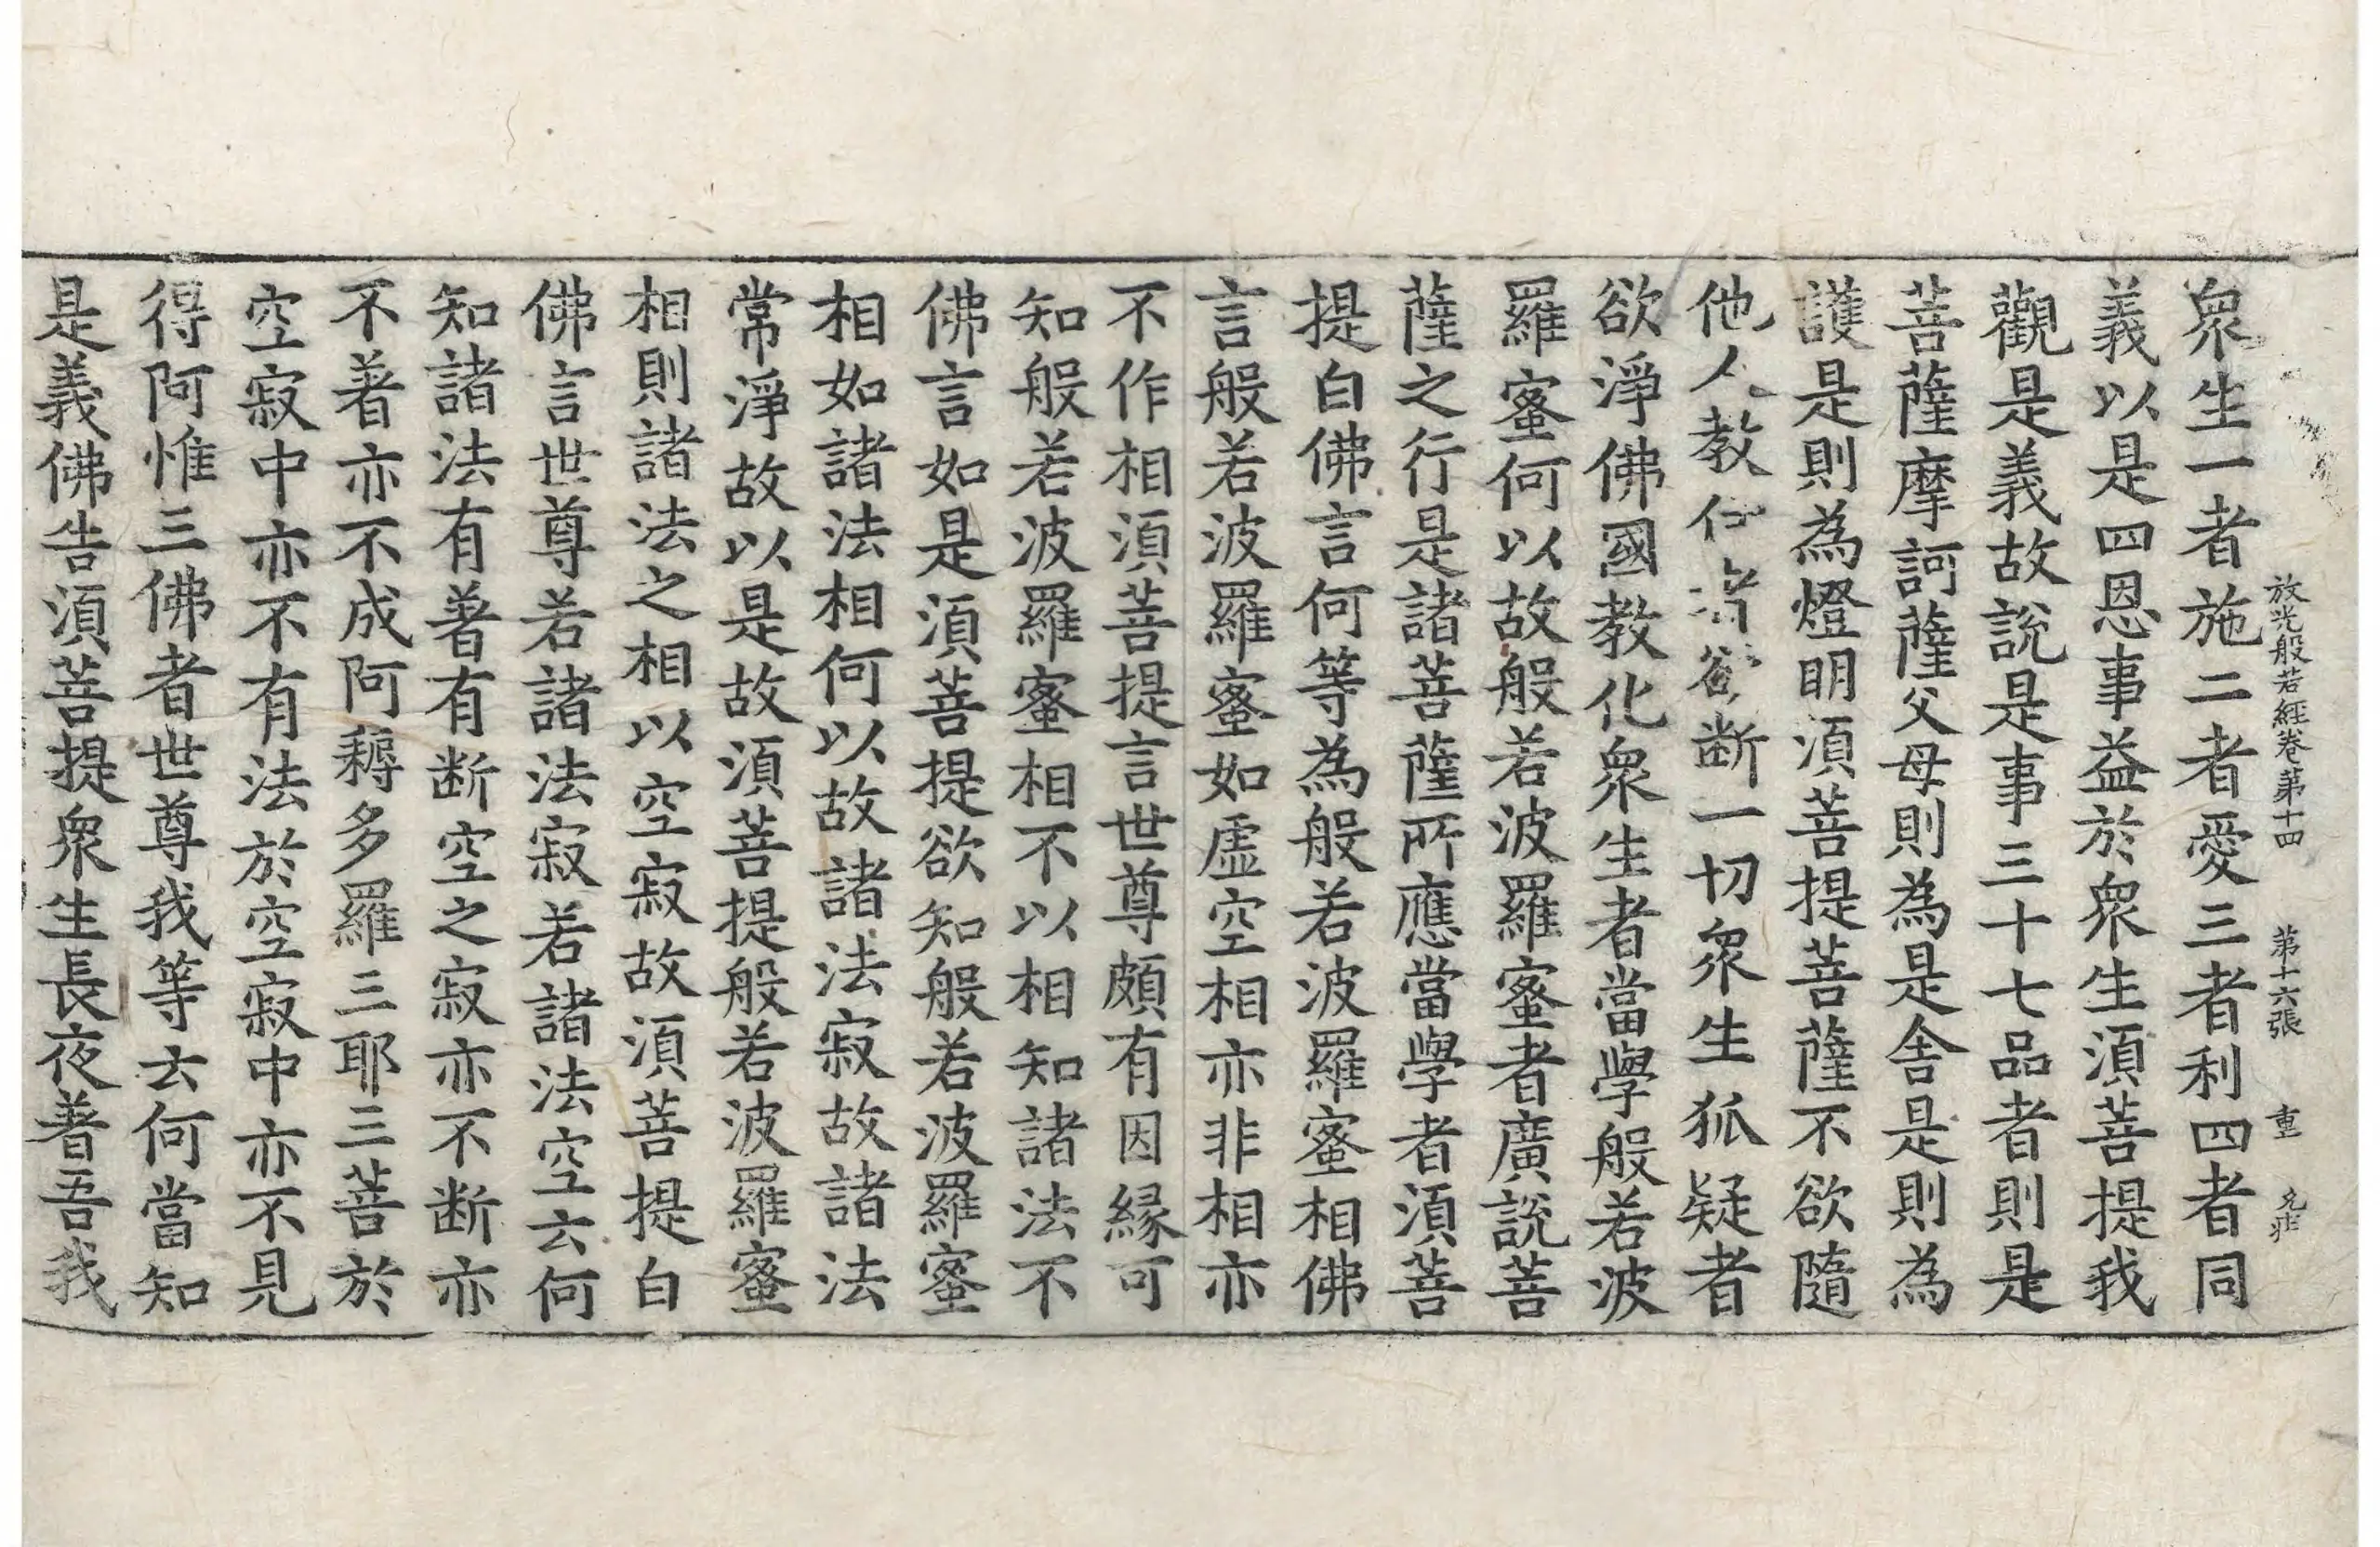 放光般若經卷第十四　第十六張　重
衆生一者施二者愛三者利四者同
義以是四恩事益於衆生須菩提我
觀是義故說是事三十七品者則是
菩薩摩訶薩父母則為是舍是則為
護是則為燈明須菩提菩薩不欲隨
他人教 欲断一切衆生狐疑者
欲淨佛國教化衆生者當學般若波
羅蜜何以故般若波羅蜜者廣說菩
薩之行是諸菩薩所應當學者須菩
提白佛言何等為般若波羅蜜相佛
言般若波羅蜜如虛空相亦非相亦
不作相須菩提言世尊頗有因緣可
知般若波羅蜜相不以相知諸法不
佛言如是須菩提欲知般若波羅蜜
相如諸法相何以故諸法寂故諸法
常淨故以是故須菩提般若波羅蜜
相則諸法之相以空寂故須菩提白
佛言世尊若諸法寂若諸法空云何
知諸法有著有断空之寂亦不断亦
不著亦不成阿耨多羅三耶三菩於
空寂中亦不有法於空寂中亦不見
得阿惟三佛者世尊我等云何當知
是義佛告須菩提衆生長夜著吾我